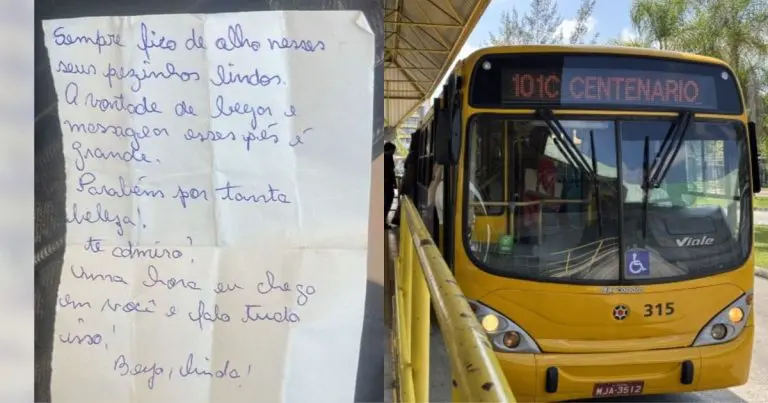 Sempre fico de olho nesses
seus pezinhos lindos.
A vontade de beijar e
massagear esses pés é
grande.
Parabém por tanta
beleza!
te admiro!
Uma hora eu chego
em você e falo tudo
isso!
Beijo, linda!
101C CENTENARIO
Viale
315
MJA-3512